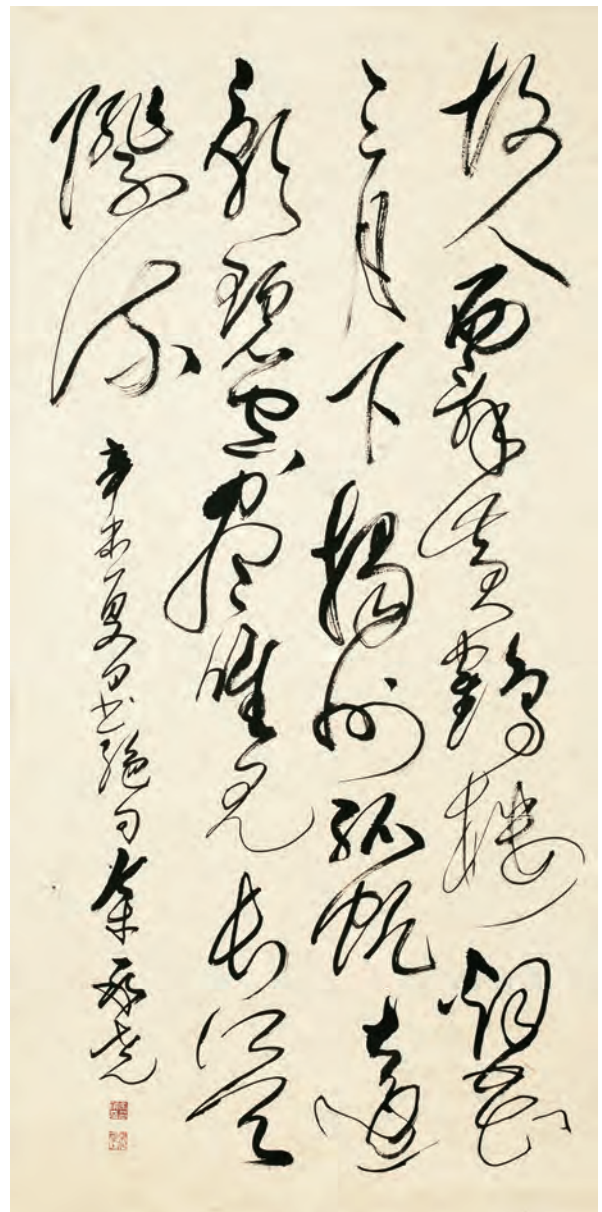 故人西辭黃鶴樓烟花
三月下揚州孤帆遠
影碧空盡惟見長江天
際流
辛未夏日書絕句余承堯